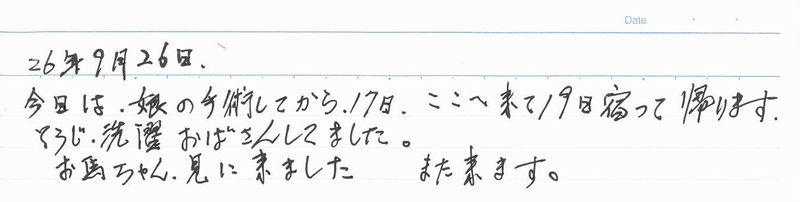 Date
26年9月26日.
今日は.娘の手術してから.17日.ここへ来て19日宿って帰ります.
そうじ.洗濯おばさんしてました。
お馬ちゃん.見に来ました また来ます。